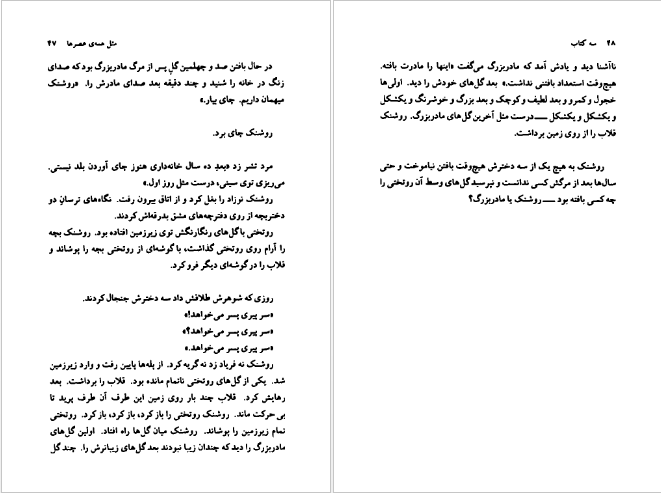 مثل همه‌ی عصرها ۴۷
در حال بافتن صد و چهلمین گل پس از مرگ مادربزرگ بود که صدای
زنگ در خانه را شنید و چند دقیقه بعد صدای مادرش را. «روشنک
میهمان داریم. چای بیار.»
روشنک چای برد.
مرد تشر زد «بعدِ ده سال خانه‌داری هنوز چای آوردن بلد نیستی.
می‌ریزی توی سینی، درست مثل روز اول.»
روشنک نوزاد را بغل کرد و از اتاق بیرون رفت. نگاه‌های ترسان دو
دختربچه از روی دفترچه‌های مشق بدرقه‌اش کردند.
روتختی با گل‌های رنگارنگش توی زیرزمین افتاده بود. روشنک بچه
را آرام روی روتختی گذاشت، با گوشه‌ای از روتختی بچه را پوشاند و
قلاب را در گوشه‌ای دیگر فرو کرد.
روزی که شوهرش طلاقش داد سه دخترش جنجال کردند.
«سر پیری پسر می‌خواهد!»
«سر پیری پسر می‌خواهد؟»
«سر پیری پسر می‌خواهد.»
روشنک نه فریاد زد نه گریه کرد. از پله‌ها پایین رفت و وارد زیرزمین
شد. یکی از گل‌های روتختی ناتمام مانده بود. قلاب را برداشت. بعد
رهایش کرد. قلاب چند بار روی زمین این طرف آن طرف پرید تا
بی‌حرکت ماند. روشنک روتختی را باز کرد، باز کرد، باز کرد. روتختی
تمام زیرزمین را پوشاند. روشنک میان گل‌ها راه افتاد. اولین گل‌های
مادربزرگ را دید که چندان زیبا نبودند بعد گل‌های زیباترش را. چند گل
۴۸ سه کتاب
ناآشنا دید و یادش آمد که مادربزرگ می‌گفت «اینها را مادرت بافته.
هیچ‌وقت استعداد بافتنی نداشت.» بعد گل‌های خودش را دید. اولی‌ها
خجول و کمرو و بعد لطیف و کوچک و بعد بزرگ و خوشرنگ و یکشکل
و یکشکل و یکشکل ــــ درست مثل آخرین گل‌های مادربزرگ. روشنک
قلاب را از روی زمین برداشت.
روشنک به هیچ یک از سه دخترش هیچ‌وقت بافتن نیاموخت و حتی
سال‌ها بعد از مرگش کسی ندانست و نپرسید گل‌های وسط آن روتختی را
چه کسی بافته بود ــــ روشنک یا مادربزرگ؟